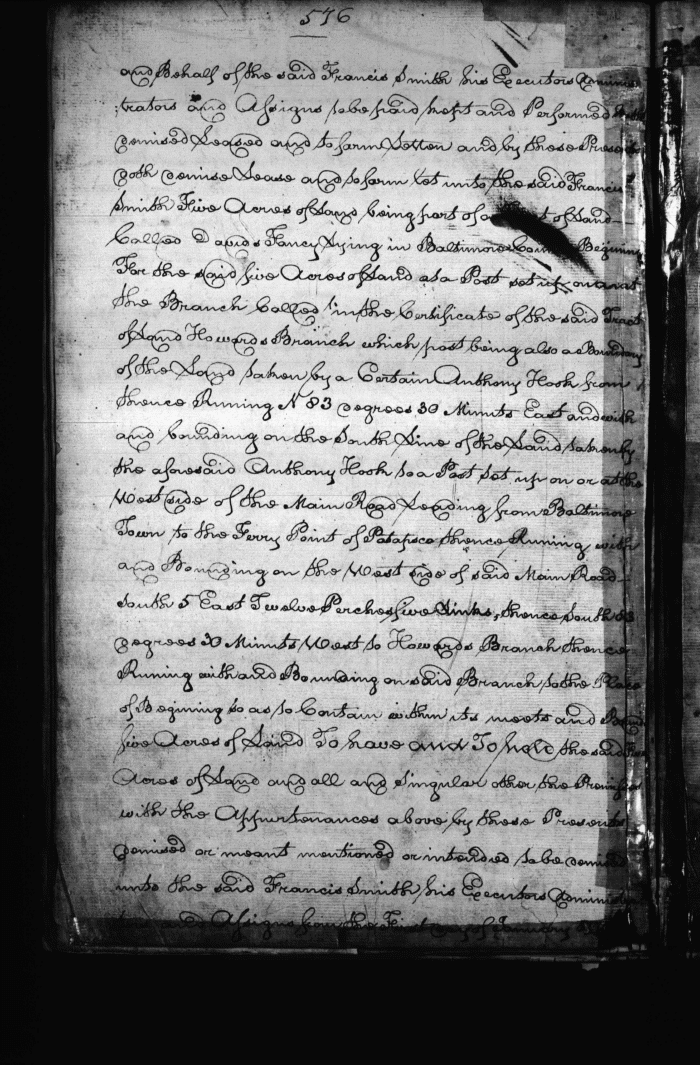 576
and Behalf of the said Francis Smith his Executors Adminis
:trators and Assigns to be paid kept and Performed
demised Leased and to farm Letten and by these Presents
doth demise Lease and to farm Let unto the said Francis
Smith Five Acres of Land being part of a of Land
Called Davids Fancy Lying in Baltimore County Begining
For the said five Acres of Land at a Post set up on or at
the Branch Called in the Certificate of the said Tract
of Land Howards Branch which post being also a Boundary
of the Land taken by a Certain Anthony Hook from
thence Runing N 83 degrees 30 Minuts East and with
and bounding on the South Line of the Land taken by
the aforesaid Anthony Hook to a Post set up on or at the
West side of the Main Road Leading from Baltimore
Town to the Ferry Point of Patapsco thence Runing with
and Bounding on the West side of said Main Road
South 5 East Twelve Perches five Links, thence South 83
degrees 30 Minuts West to Howards Branch thence
Runing with and Bounding on said Branch to the Place
of Begining so as to Contain within its meets and
five Acres of Land To have and To hold the said
Acres of Land and all and Singular other the Premises
with the Appurtenances above by these Presents
demised or meant mentioned or intended to be demised
unto the said Francis Smith his Executors Administra
tors and Assigns from the First day of January